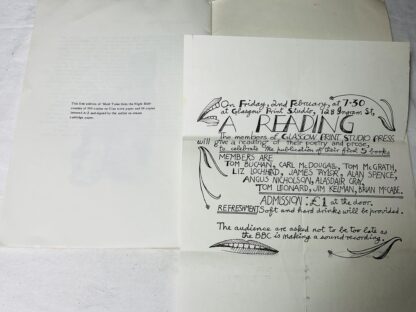 This first edition of Short Tales from the Night Shift
consists of 500 copies on Glan wove paper and 26 copies
lettered A-Z and signed by the author on cream
Ludlow paper.
On Friday, 2nd February, at 7-30
at Glasgow Print Studio, 128 Ingram St,
A READING
The members of GLASGOW PRINT STUDIO PRESS
will give a reading of their poetry and prose,
to celebrate the publication of their first 5 books
MEMBERS ARE
TOM BUCHAN, CARL McDOUGALL, TOM McGRATH,
LIZ LOCHHEAD, JAMES TAYLOR, ALAN SPENCE,
ANGUS NICHOLSON, ALASDAIR GRAY,
TOM LEONARD, JIM KELMAN, BRIAN McCABE.
ADMISSION: £1 at the door.
REFRESHMENT: Soft and hard drinks will be provided.
The audience are asked not to be too late as
the BBC is making a sound recording.